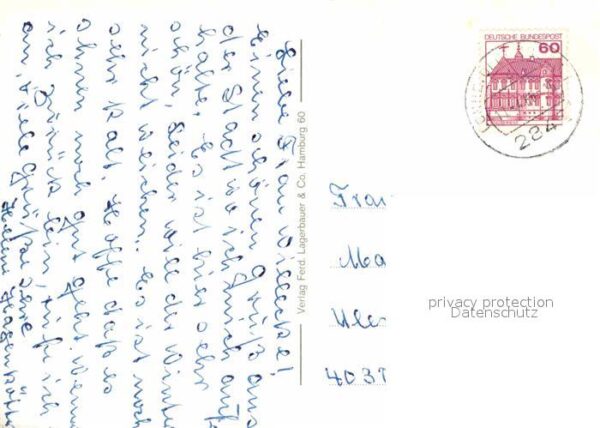 Liebe Frau Willecke!
Einen schönen Gruß aus
der Stadt wo ich mich auf-
halte. Es ist hier sehr
schön, leider will der Winter
nicht weichen. Es ist noch
sehr kalt. Hoffe daß es
ihnen noch gut geht. Wenn
ich zurück bin, rufe ich
an, viele Grüße Ihre
Helene
Verlag Ferd. Lagerbauer & Co. Hamburg 60
DEUTSCHE BUNDESPOST
60
284
Frau
Ma
4031
privacy protection
Datenschutz